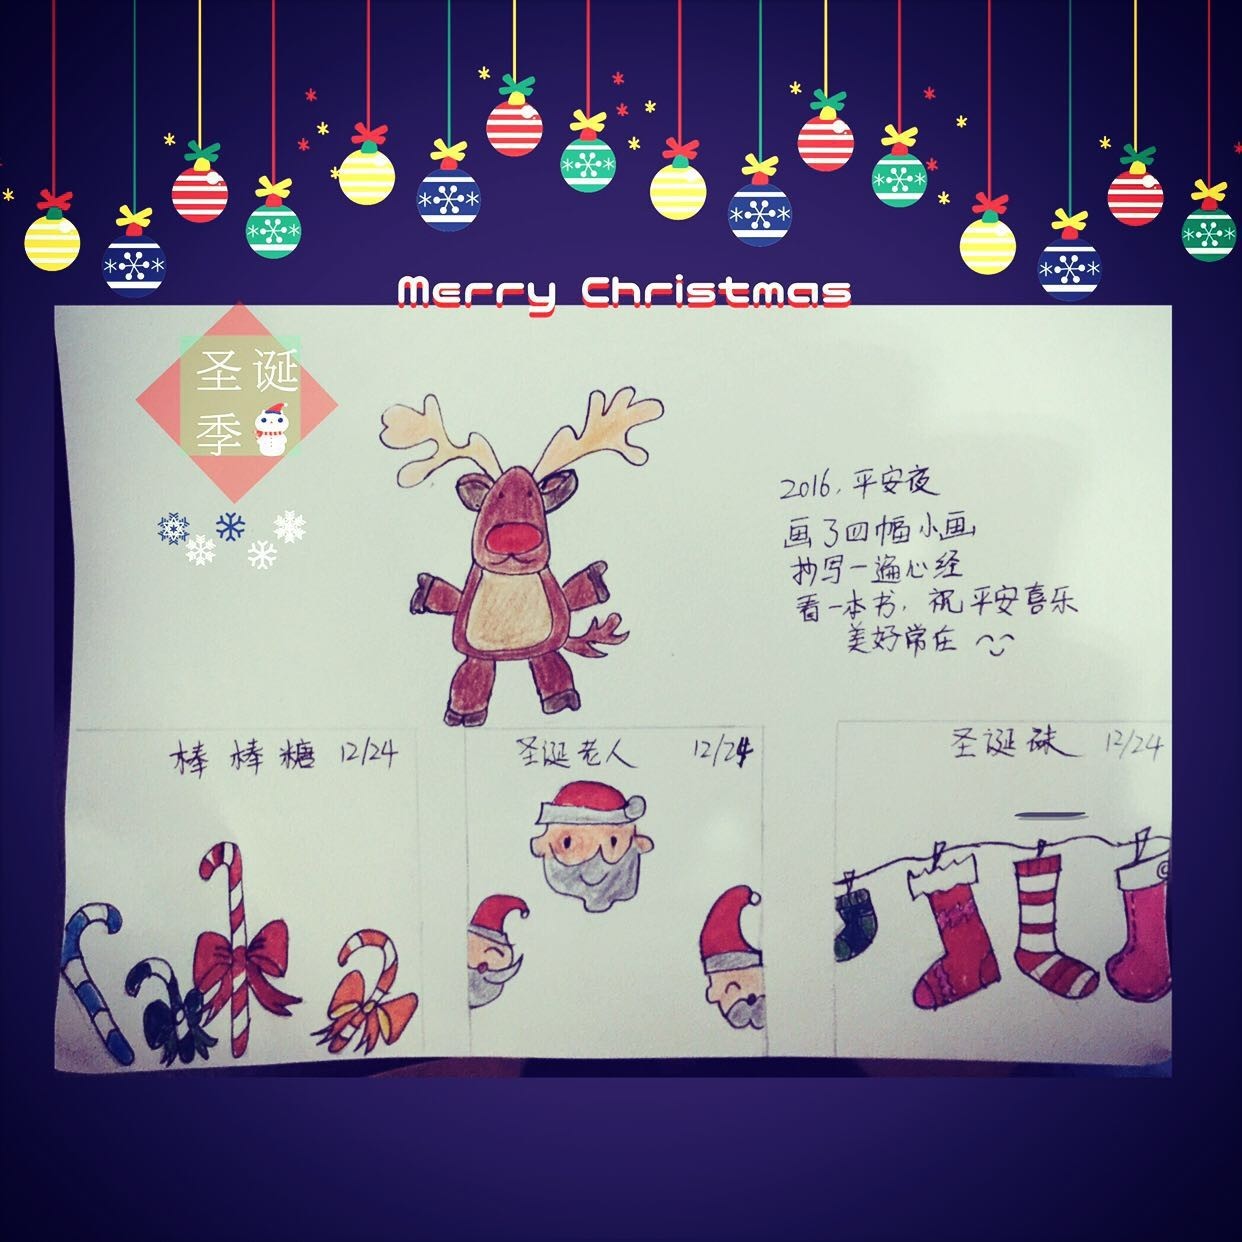 Merry Christmas
圣诞
季
2016.平安夜
画了四幅小画
抄写一遍心经
看一本书.祝平安喜乐
美好常在
棒棒糖 12/24
圣诞老人 12/24
圣诞袜 12/24